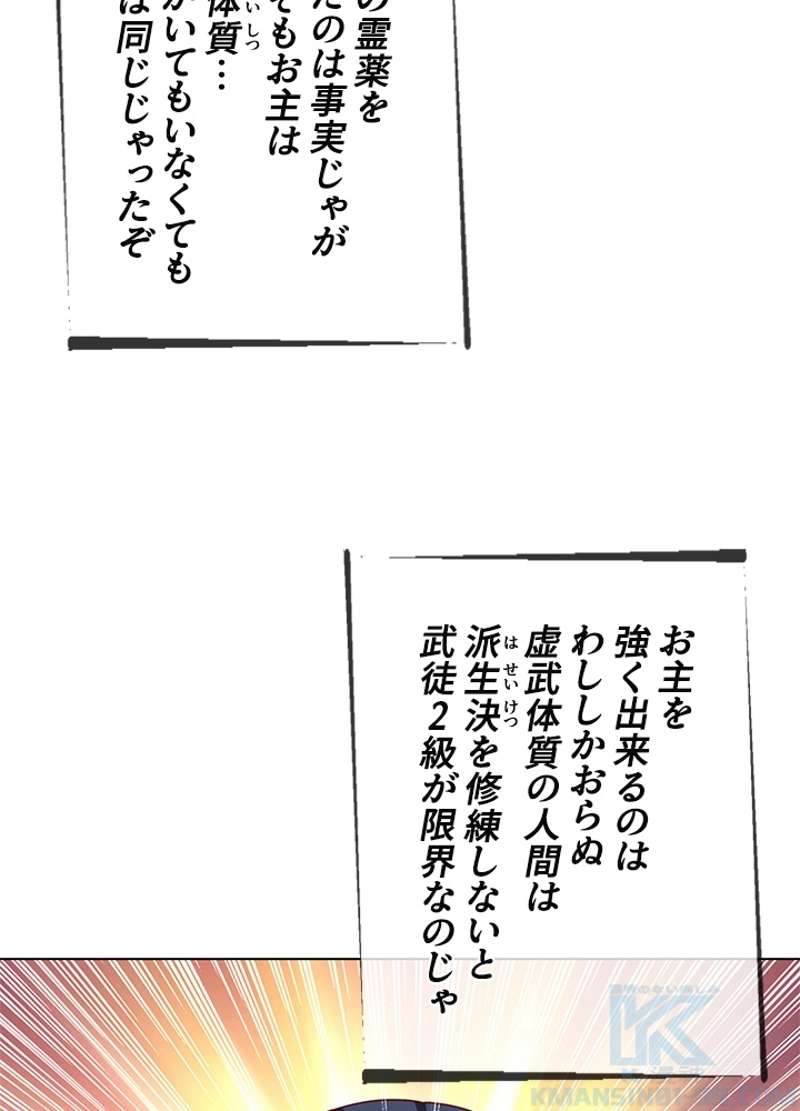 の霊薬を
たのは事実じゃが
でもお主は
体質…
がいてもいなくても
は同じじゃったぞ
お主を
強く出来るのは
わししかおらぬ
虚武体質の人間は
派生決を修練しないと
武徒2級が限界なのじゃ
KMANSIN06-09.COM